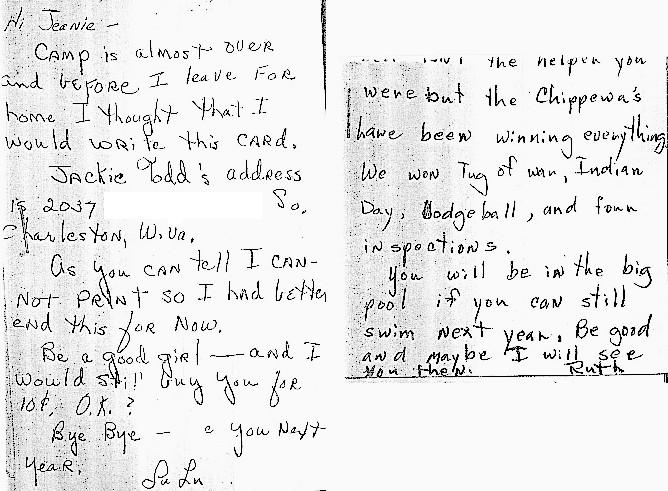 Hi Jeanie -
Camp is almost over
and before I leave for
home I thought that I
would write this card.
Jackie Todd's address
is 2037 So.
Charleston, W. Va.
As you can tell I can-
not print so I had better
end this for now.
Be a good girl — and I
would still buy you for
10¢, O.K.?
Bye Bye — c you next
year.
Su Lu
the helper you
were but the Chippewa's
have been winning everything
We won Tug of war, Indian
Day, Dodgeball, and four
inspections.
You will be in the big
pool if you can still
swim next year. Be good
and maybe I will see
you then. Ruth